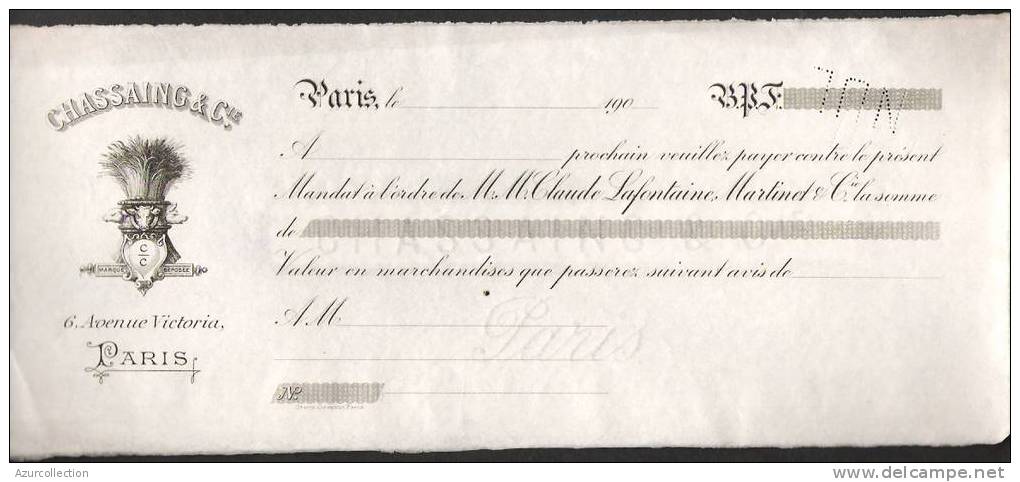 CHASSAING & Cie
C
C
MARQUE DEPOSÉE
6, Avenue Victoria,
PARIS
Paris, le 190 B.P.F.
A prochain veuillez payer contre le présent
Mandat à l'ordre de M.M. Claude Lafontaine, Martinet & Cie la somme
de
CHASSAING & CIE
Valeur en marchandises que passerez suivant avis de
A M
Paris
No.
Azurcollection
www.delcampe.net